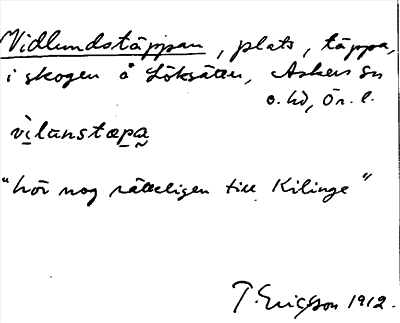 Vidlundstäppan, plats, täppa,
i skogen å Löksäter, Askers sn
o. hd, Ör. l.
vìlanstæpa
"hör nog rätteligen till Kilinge"
T. Ericsson 1912.